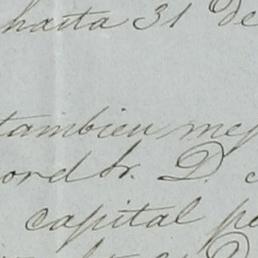 hasta 31 de
tambien me
ord Sr. D.
capital pe